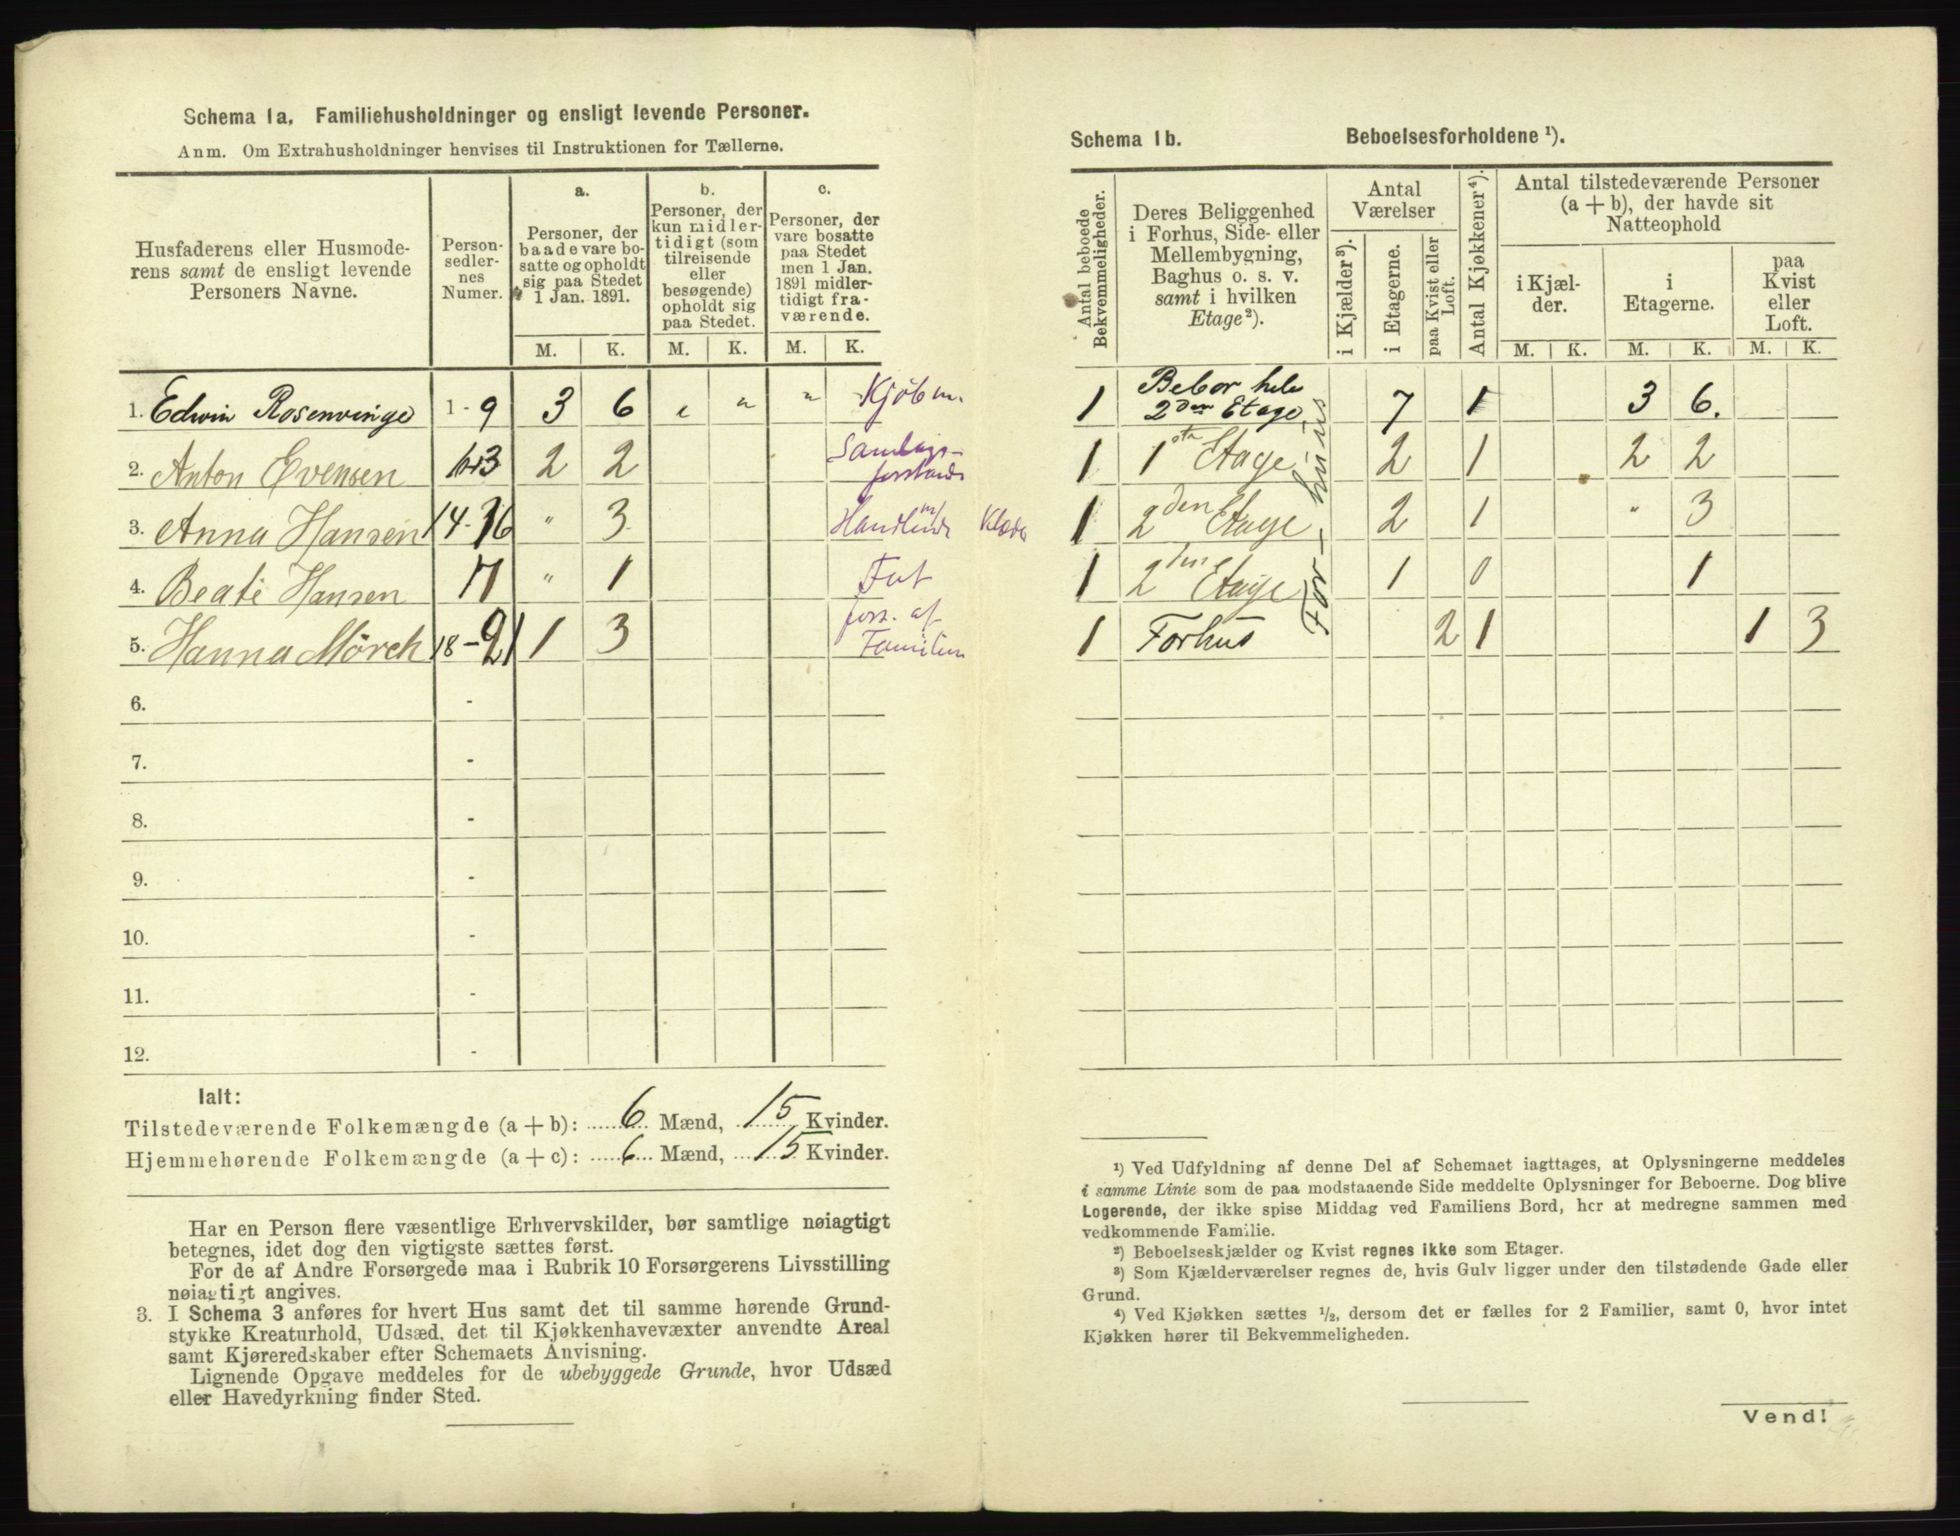 Schema 1a. Familiehusholdninger og ensligt levende Personer.
Anm. Om Extrahusholdninger henvises til Instruktionen for Tællerne.
Husfaderens eller Husmoderens samt de ensligt levende Personers Navne.
Personsedlernes Numer.
a.
Personer, der baade vare bosatte og opholdt sig paa Stedet 1 Jan. 1891.
b.
Personer, der kun midlertidigt (som tilreisende eller besøgende) opholdt sig paa Stedet.
c.
Personer, der vare bosatte paa Stedet men 1 Jan. 1891 midlertidigt fraværende.
M. K. M. K. M. K.
1. Edwin Rosenvinge 1 - 9 3 6 " " " Kjøbm.
2. Anton Evensen 2 2 Samlags-
3. Anna Hansen 14-16 " 3 Handlende m/ Klæde
4. Beate Hansen 17 " 1 Fat
5. Hanna Mörch 18-21 1 3 fors. af Familien
6. -
7. -
8. -
9. -
10. -
11. -
12. -
Ialt:
Tilstedeværende Folkemængde (a + b): 6 Mænd, 15 Kvinder.
Hjemmehørende Folkemængde (a + c): 6 Mænd, 15 Kvinder.
Har en Person flere væsentlige Erhvervskilder, bør samtlige nøiagtigt
betegnes, idet dog den vigtigste sættes først.
For de af Andre Forsørgede maa i Rubrik 10 Forsørgerens Livsstilling
nøiagtigt angives.
3. I Schema 3 anføres for hvert Hus samt det til samme hørende Grund-
stykke Kreaturhold, Udsæd, det til Kjøkkenhavevæxter anvendte Areal
samt Kjøreredskaber efter Schemaets Anvisning.
Lignende Opgave meddeles for de ubebyggede Grunde, hvor Udsæd
eller Havedyrkning finder Sted.
Schema 1b. Beboelsesforholdene ¹).
Antal beboede Bekvemmeligheder.
Deres Beliggenhed i Forhus, Side- eller Mellembygning, Baghus o. s. v. samt i hvilken Etage²).
Antal Værelser
i Kjælder³).
i Etagerne.
paa Kvist eller Loft.
Antal Kjøkkener⁴).
Antal tilstedeværende Personer (a + b), der havde sit Natteophold
i Kjælder.
i Etagerne.
paa Kvist eller Loft.
M. K. M. K. M. K.
1 Bebor hele 2den Etage 7 1 3 6.
1 1ste Etage 2 1 2 2
1 2den Etage 2 1 " 3
1 2den Etage 1 0 1
1 Forhus 2 1 1 3
For-huus
¹) Ved Udfyldning af denne Del af Schemaet iagttages, at Oplysningerne meddeles
i samme Linie som de paa modstaaende Side meddelte Oplysninger for Beboerne. Dog blive
Logerende, der ikke spise Middag ved Familiens Bord, her at medregne sammen med
vedkommende Familie.
²) Beboelseskjælder og Kvist regnes ikke som Etager.
³) Som Kjælderværelser regnes de, hvis Gulv ligger under den tilstødende Gade eller
Grund.
⁴) Ved Kjøkken sættes ½, dersom det er fælles for 2 Familier, samt 0, hvor intet
Kjøkken hører til Bekvemmeligheden.
Vend!